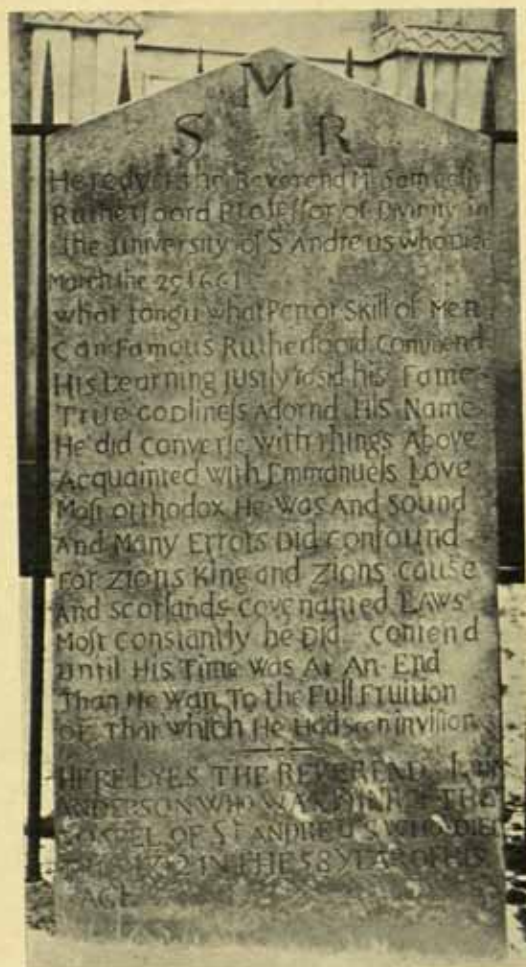 M
S R
Here Lyes the Reverend Mr Samuell
Rutherfoord Professor of Divinity in
the University of St Andreus who Died
March the 29 1661
what tongu what Pen or Skill of Men
Can Famous Rutherfoord Commend
His Learning Justly raisd his Fame
True GODliness Adornd His Name
He did Converse with things Above
Acquainted with Emmanuels Love
Most orthodox He Was And Sound
And Many Errors Did confound
For Zions King and Zions cause
And scotlands covenanted LAWS
Most constantly he Did contend
until His Time was At An End
Than He Wan To the Full Fruition
OF That which He Had seen in vision
HERE LYES THE REVEREND
ANDERSON WHO WAS THE
GOSPEL OF ST ANDREUS WHO DIED
IN THE 58 YEAR OF HIS
AGE